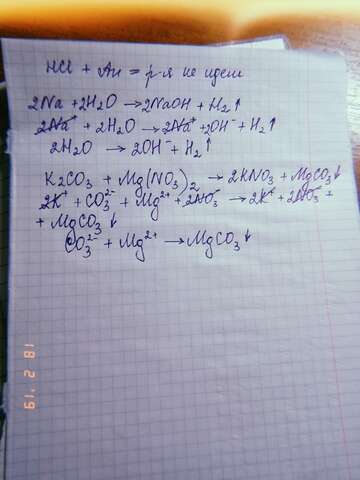 HCl + Au = р-я не идет
2Na + 2H2O → 2NaOH + H2↑
2Na⁺ + 2H2O → 2Na⁺ + 2OH⁻ + H2↑
2H2O → 2OH⁻ + H2↑
K2CO3 + Mg(NO3)2 → 2KNO3 + MgCO3↓
2K⁺ + CO3²⁻ + Mg²⁺ + 2NO3⁻ → 2K⁺ + 2NO3⁻ +
+ MgCO3↓
CO3²⁻ + Mg²⁺ → MgCO3↓
18 2 '19